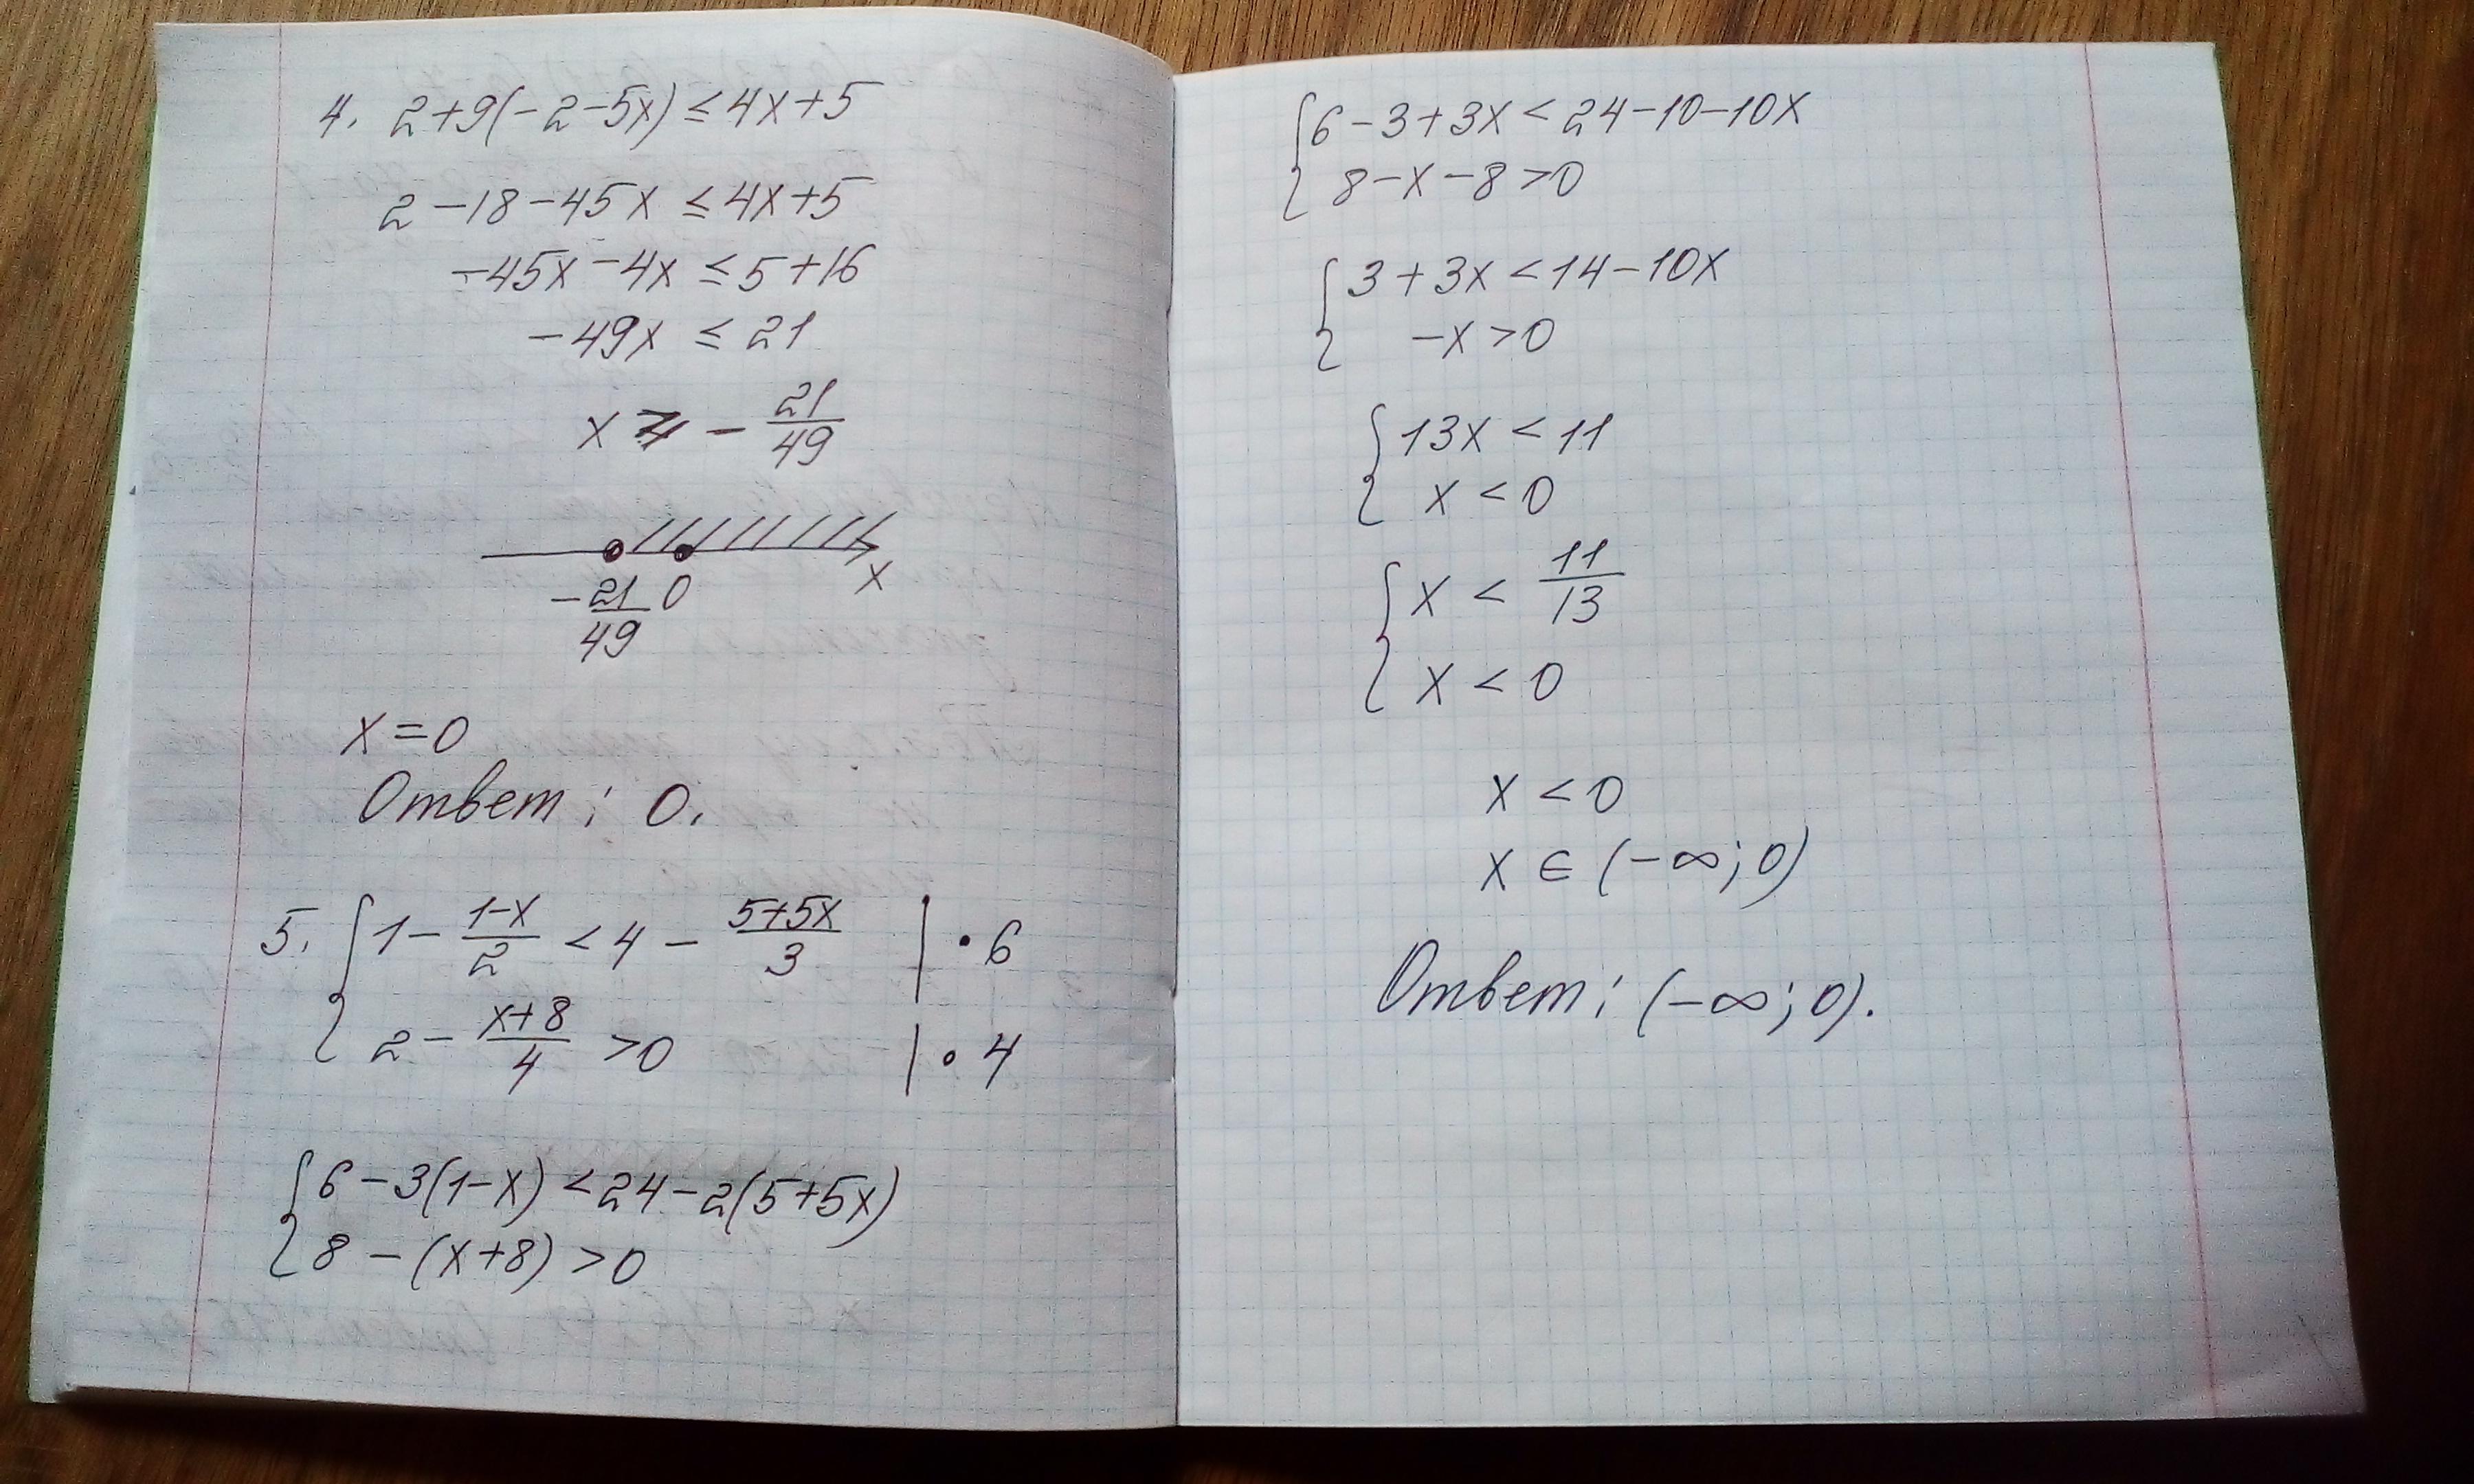 4. 2+9(-2-5x) ≤ 4x+5
2-18-45x ≤ 4x+5
-45x-4x ≤ 5+16
-49x ≤ 21
x ⩾ - 21/49
-21/49 0 x
x=0
Ответ: 0.
5. { 1 - (1-x)/2 < 4 - (5+5x)/3 | • 6
2 - (x+8)/4 > 0 | • 4
{ 6-3(1-x) < 24-2(5+5x)
8-(x+8) > 0
{ 6-3+3x < 24-10-10x
8-x-8 > 0
{ 3+3x < 14-10x
-x > 0
{ 13x < 11
x < 0
{ x < 11/13
x < 0
x < 0
x ∈ (-∞; 0)
Ответ: (-∞; 0).